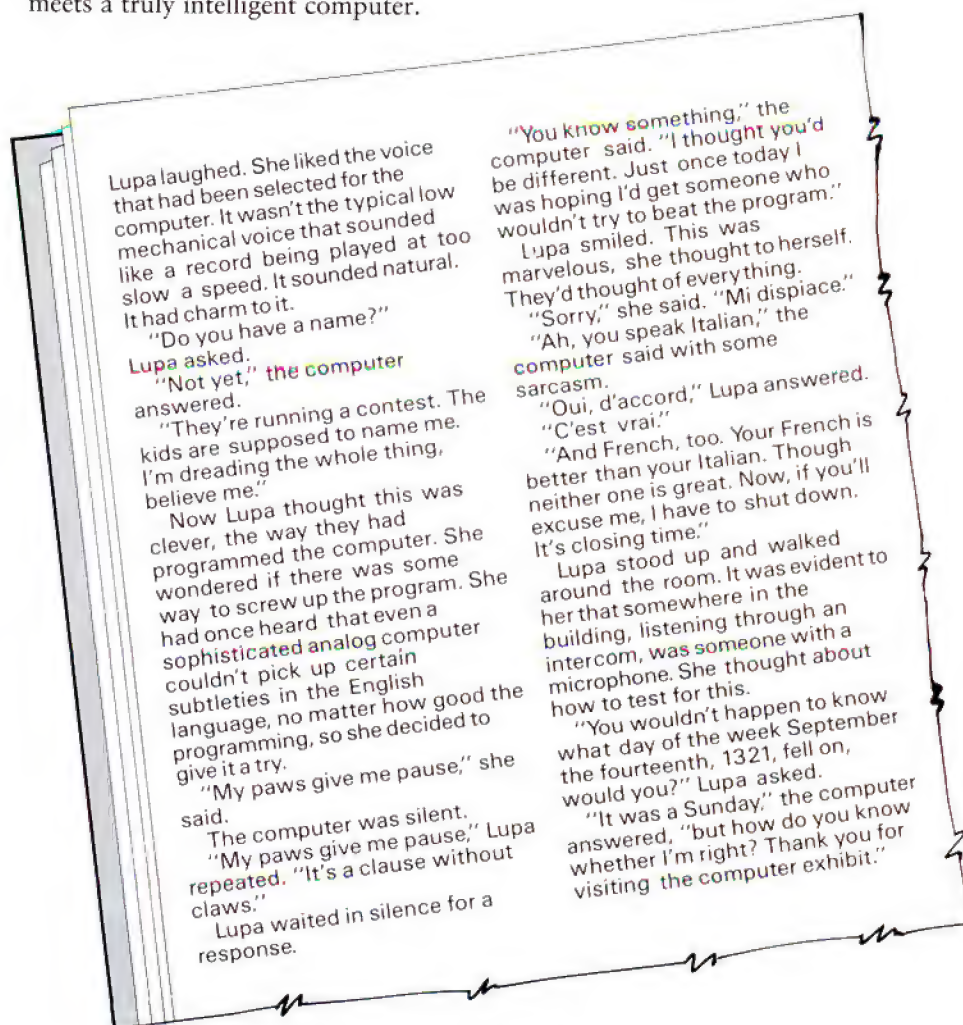 meets a truly intelligent computer.
Lupa laughed. She liked the voice
that had been selected for the
computer. It wasn't the typical low
mechanical voice that sounded
like a record being played at too
slow a speed. It sounded natural.
It had charm to it.
"Do you have a name?"
Lupa asked.
"Not yet," the computer
answered.
"They're running a contest. The
kids are supposed to name me.
I'm dreading the whole thing,
believe me."
Now Lupa thought this was
clever, the way they had
programmed the computer. She
wondered if there was some
way to screw up the program. She
had once heard that even a
sophisticated analog computer
couldn't pick up certain
subtleties in the English
language, no matter how good the
programming, so she decided to
give it a try.
"My paws give me pause," she
said.
The computer was silent.
"My paws give me pause," Lupa
repeated. "It's a clause without
claws."
Lupa waited in silence for a
response.
"You know something," the
computer said. "I thought you'd
be different. Just once today I
was hoping I'd get someone who
wouldn't try to beat the program."
Lupa smiled. This was
marvelous, she thought to herself.
They'd thought of everything.
"Sorry," she said. "Mi dispiace."
"Ah, you speak Italian," the
computer said with some
sarcasm.
"Oui, d'accord," Lupa answered.
"C'est vrai."
"And French, too. Your French is
better than your Italian. Though
neither one is great. Now, if you'll
excuse me, I have to shut down.
It's closing time."
Lupa stood up and walked
around the room. It was evident to
her that somewhere in the
building, listening through an
intercom, was someone with a
microphone. She thought about
how to test for this.
"You wouldn't happen to know
what day of the week September
the fourteenth, 1321, fell on,
would you?" Lupa asked.
"It was a Sunday," the computer
answered, "but how do you know
whether I'm right? Thank you for
visiting the computer exhibit."